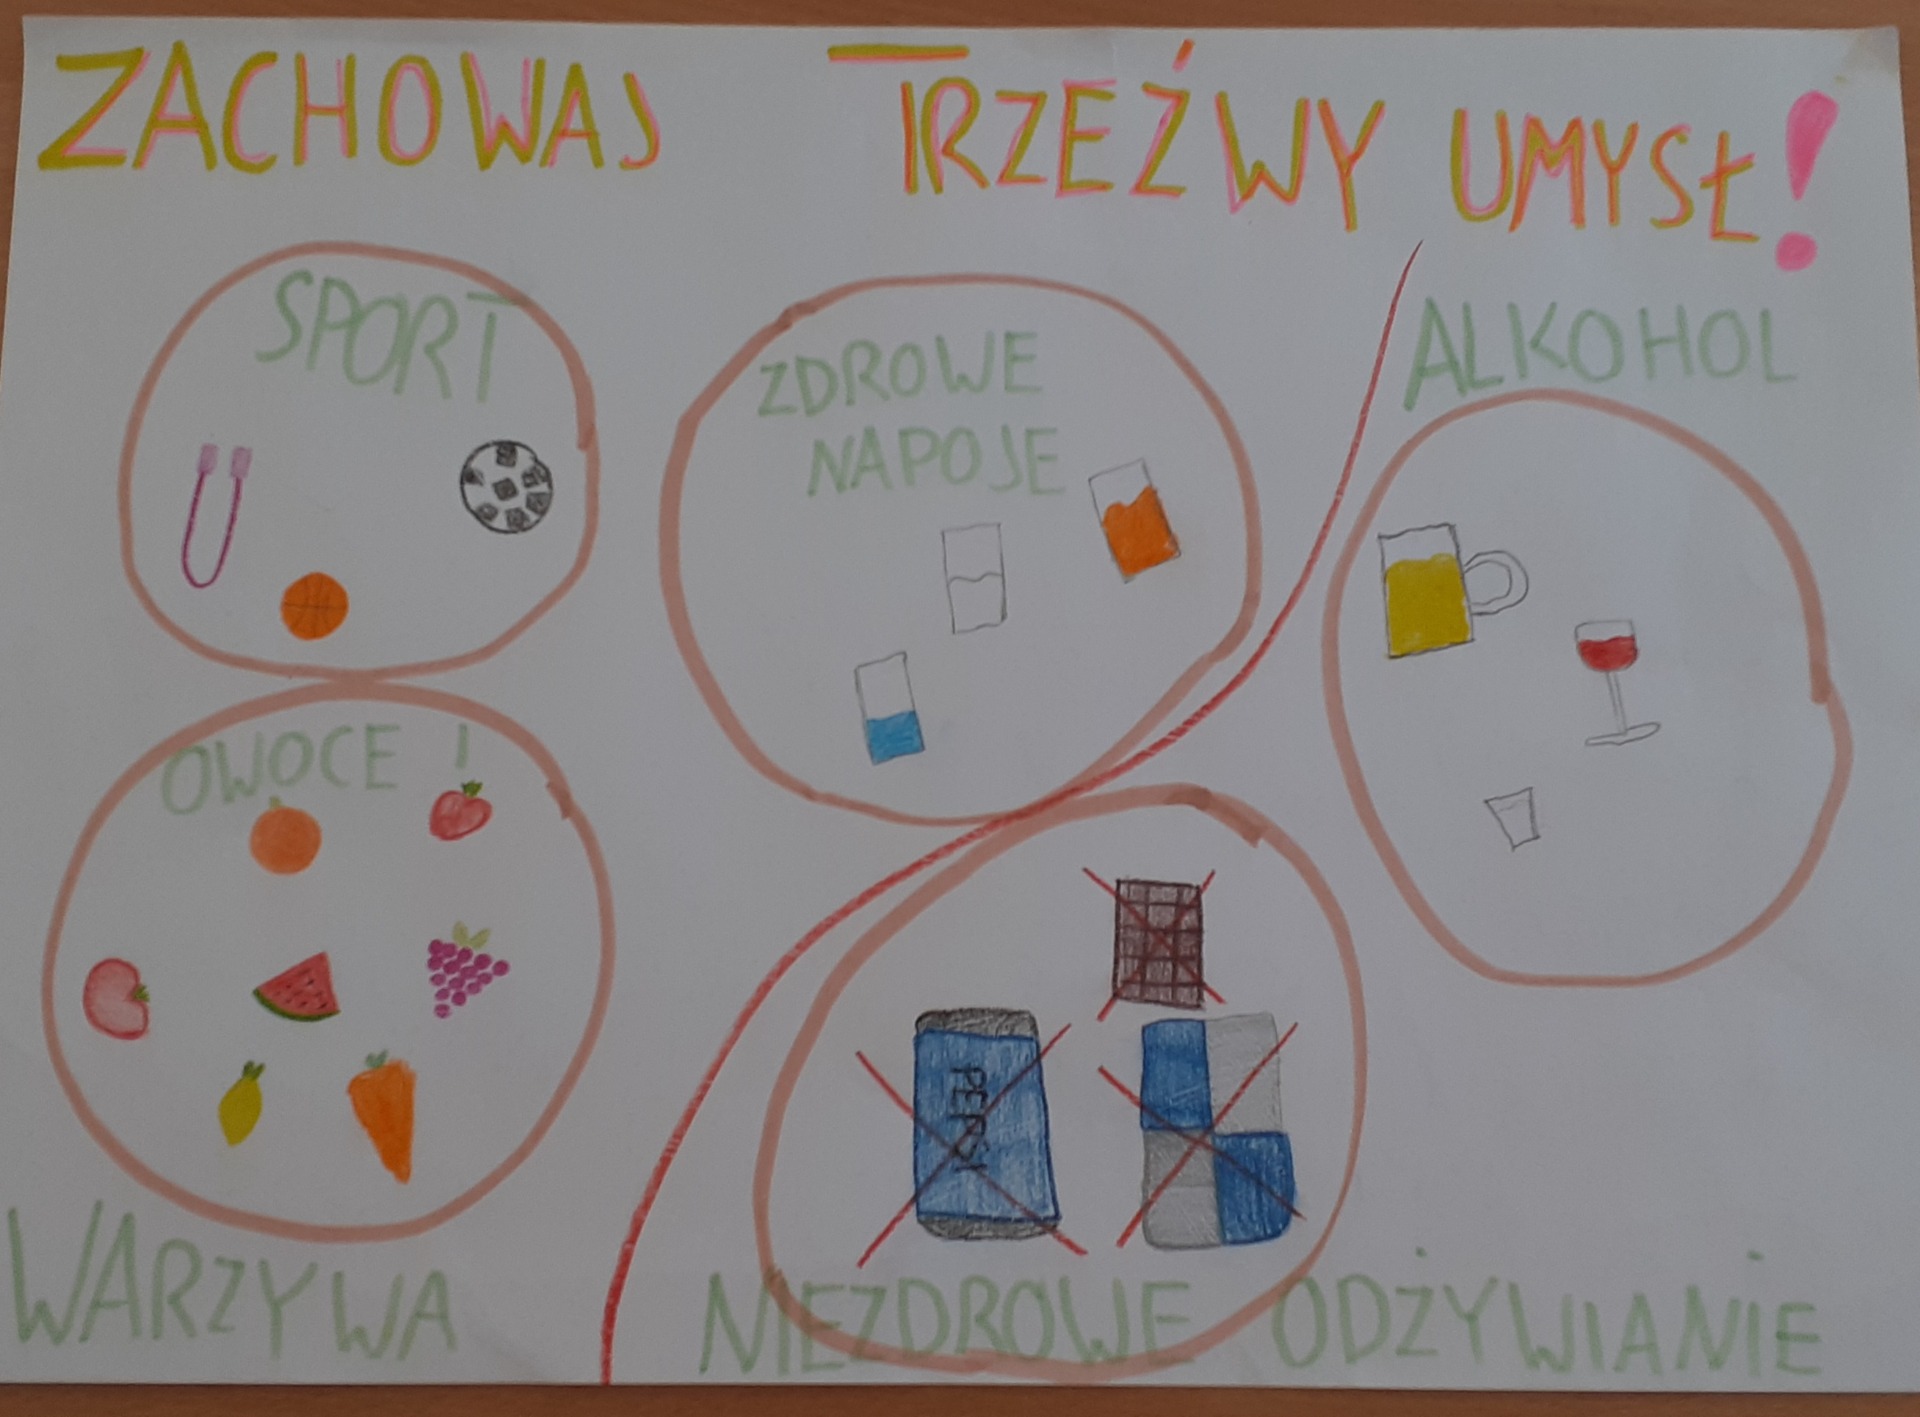 ZACHOWAJ TRZEŹWY UMYSŁ!
SPORT
ZDROWE
NAPOJE
ALKOHOL
OWOCE I
WARZYWA
PEPSI
NIEZDROWE ODŻYWIANIE